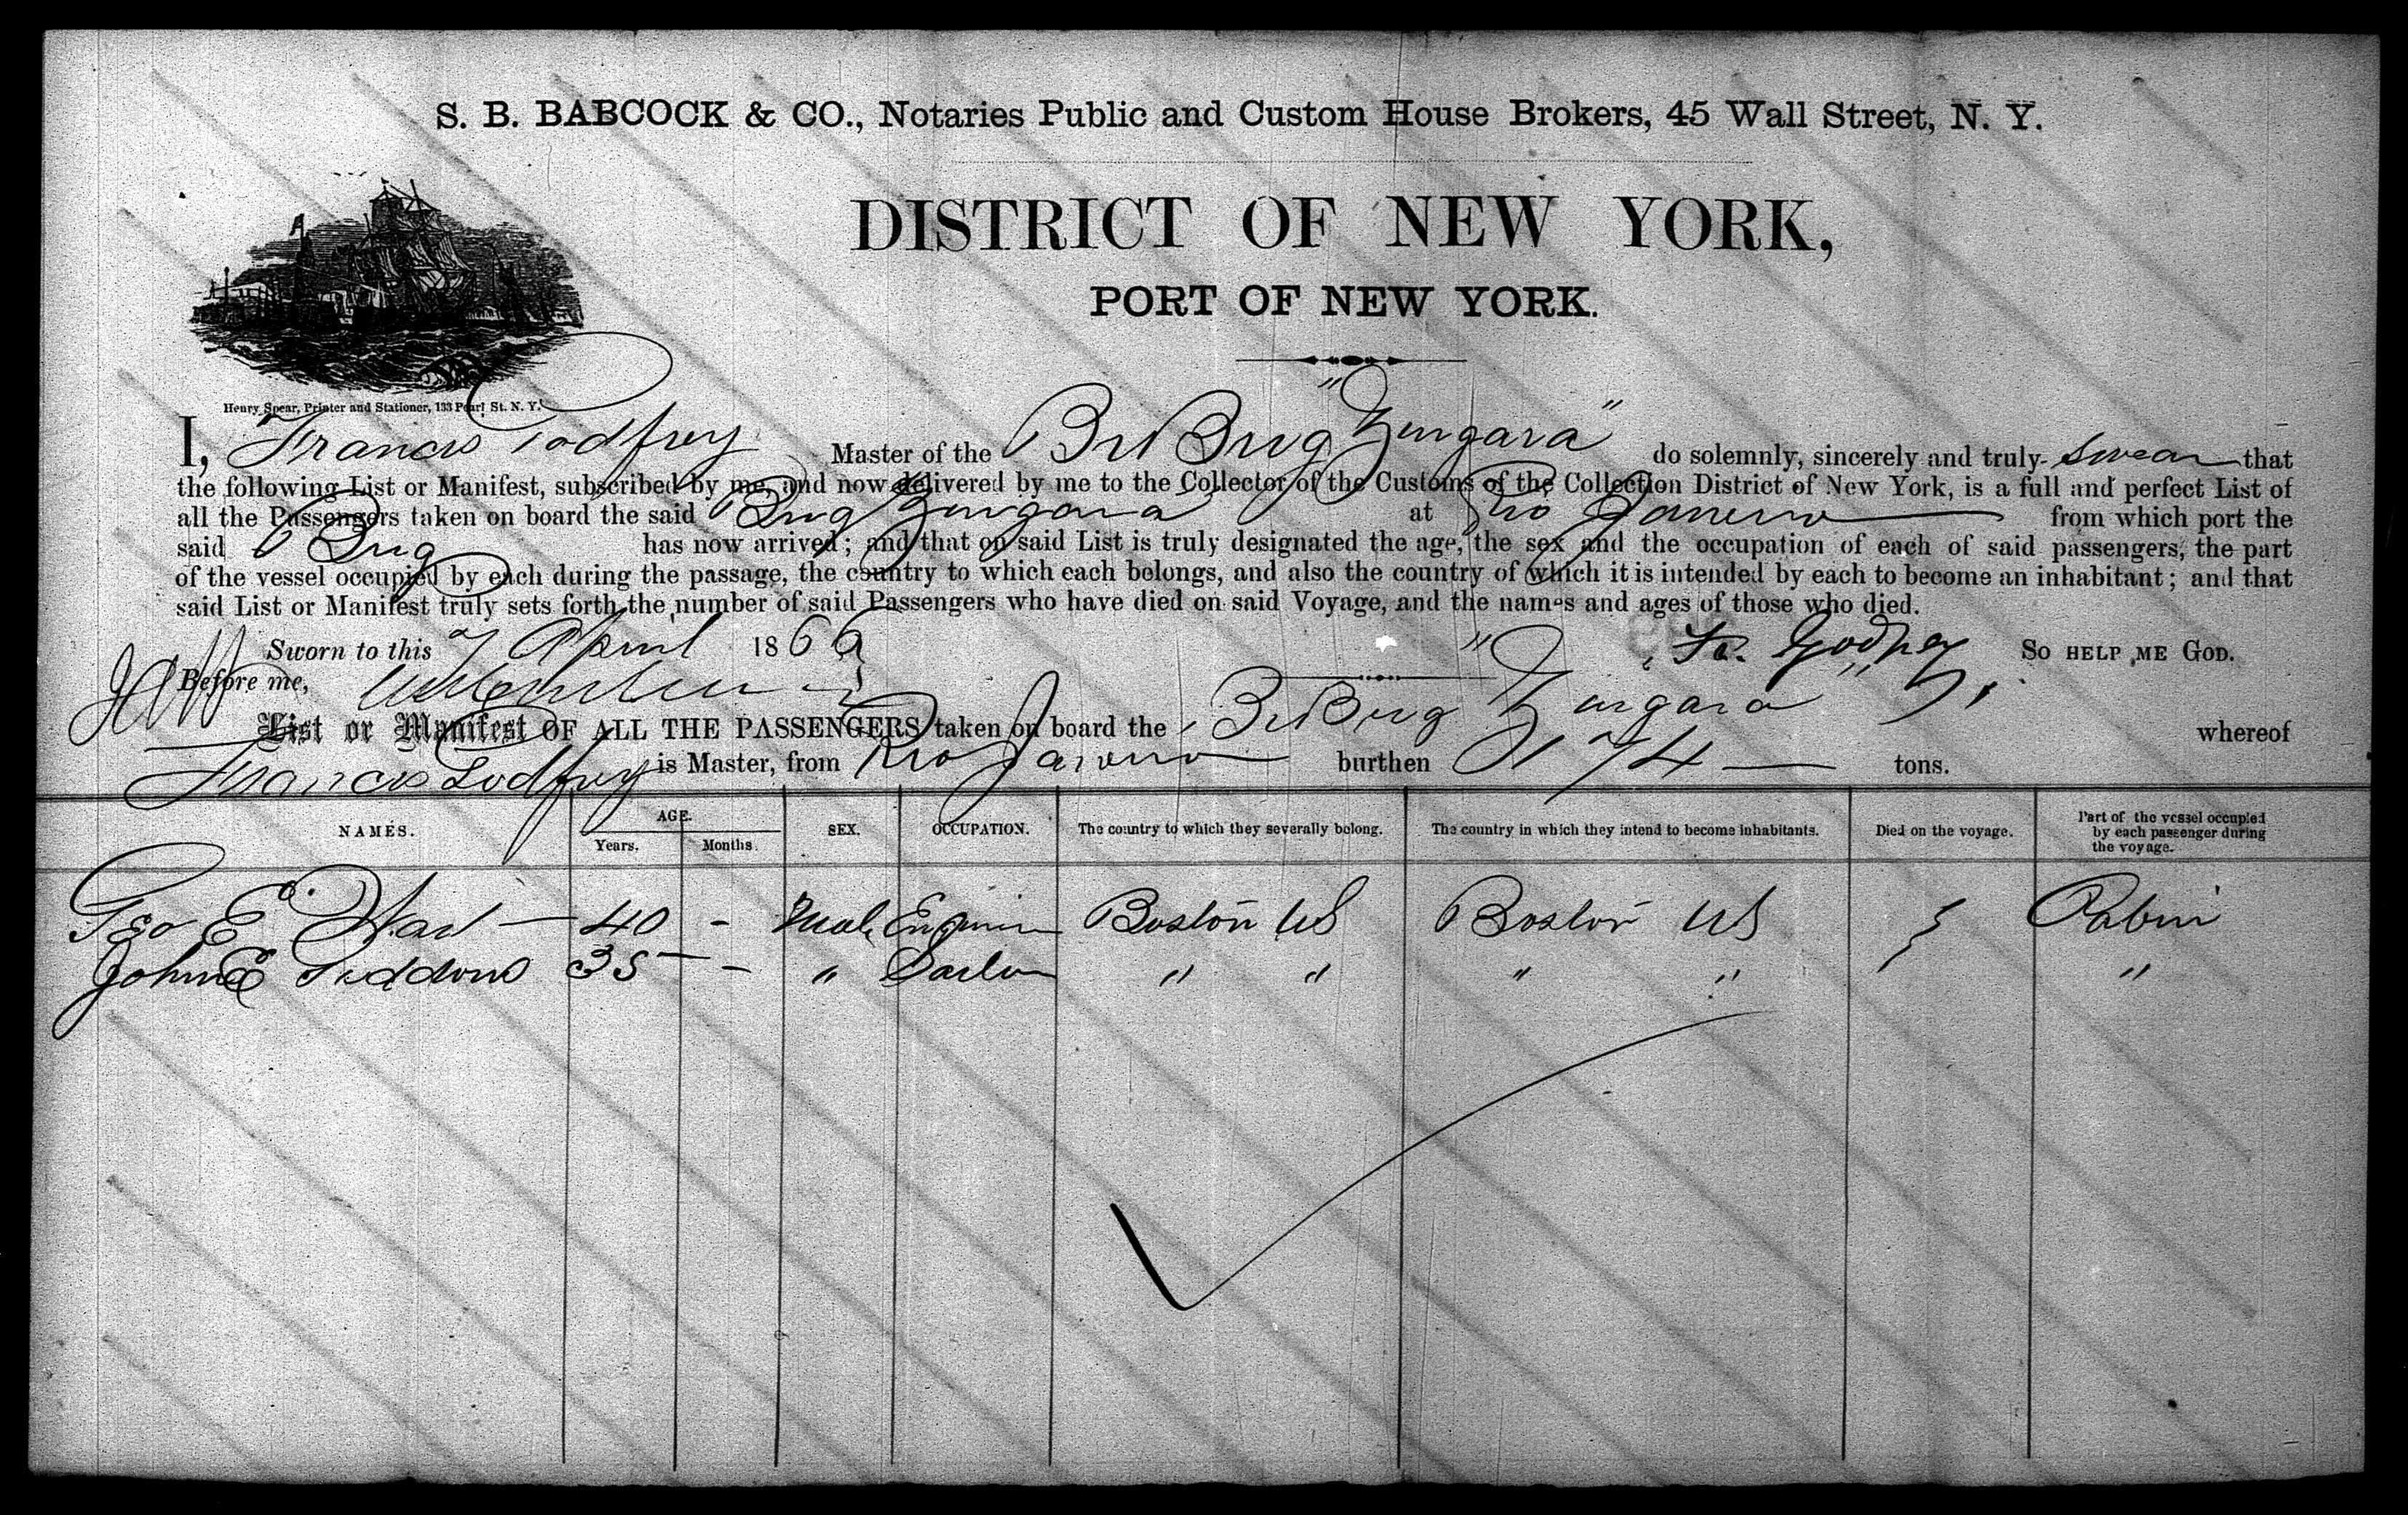 S. B. BABCOCK & CO., Notaries Public and Custom House Brokers, 45 Wall Street, N. Y.
DISTRICT OF NEW YORK,
PORT OF NEW YORK.
Henry Spear, Printer and Stationer, 133 Pearl St. N. Y.
I, Francis Godfrey Master of the Br Brig "Zingara" do solemnly, sincerely and truly swear that
the following List or Manifest, subscribed by me, and now delivered by me to the Collector of the Customs of the Collection District of New York, is a full and perfect List of
all the Passengers taken on board the said Brig Zingara at Rio Janeiro from which port the
said Brig has now arrived; and that on said List is truly designated the age, the sex and the occupation of each of said passengers, the part
of the vessel occupied by each during the passage, the country to which each belongs, and also the country of which it is intended by each to become an inhabitant; and that
said List or Manifest truly sets forth the number of said Passengers who have died on said Voyage, and the names and ages of those who died.
Sworn to this 7 April 1866 Fs. Godfrey SO HELP ME GOD.
Before me,
List or Manifest OF ALL THE PASSENGERS taken on board the Br Brig "Zingara" whereof
Francis Godfrey is Master, from Rio Janeiro burthen 174 tons.
NAMES. AGE. Years. Months. SEX. OCCUPATION. The country to which they severally belong. The country in which they intend to become inhabitants. Died on the voyage. Part of the vessel occupied by each passenger during the voyage.
Geo E 40 - Male Engineer Boston US Boston US Cabin
John E Siddons 35 - " Sailor " " " " "